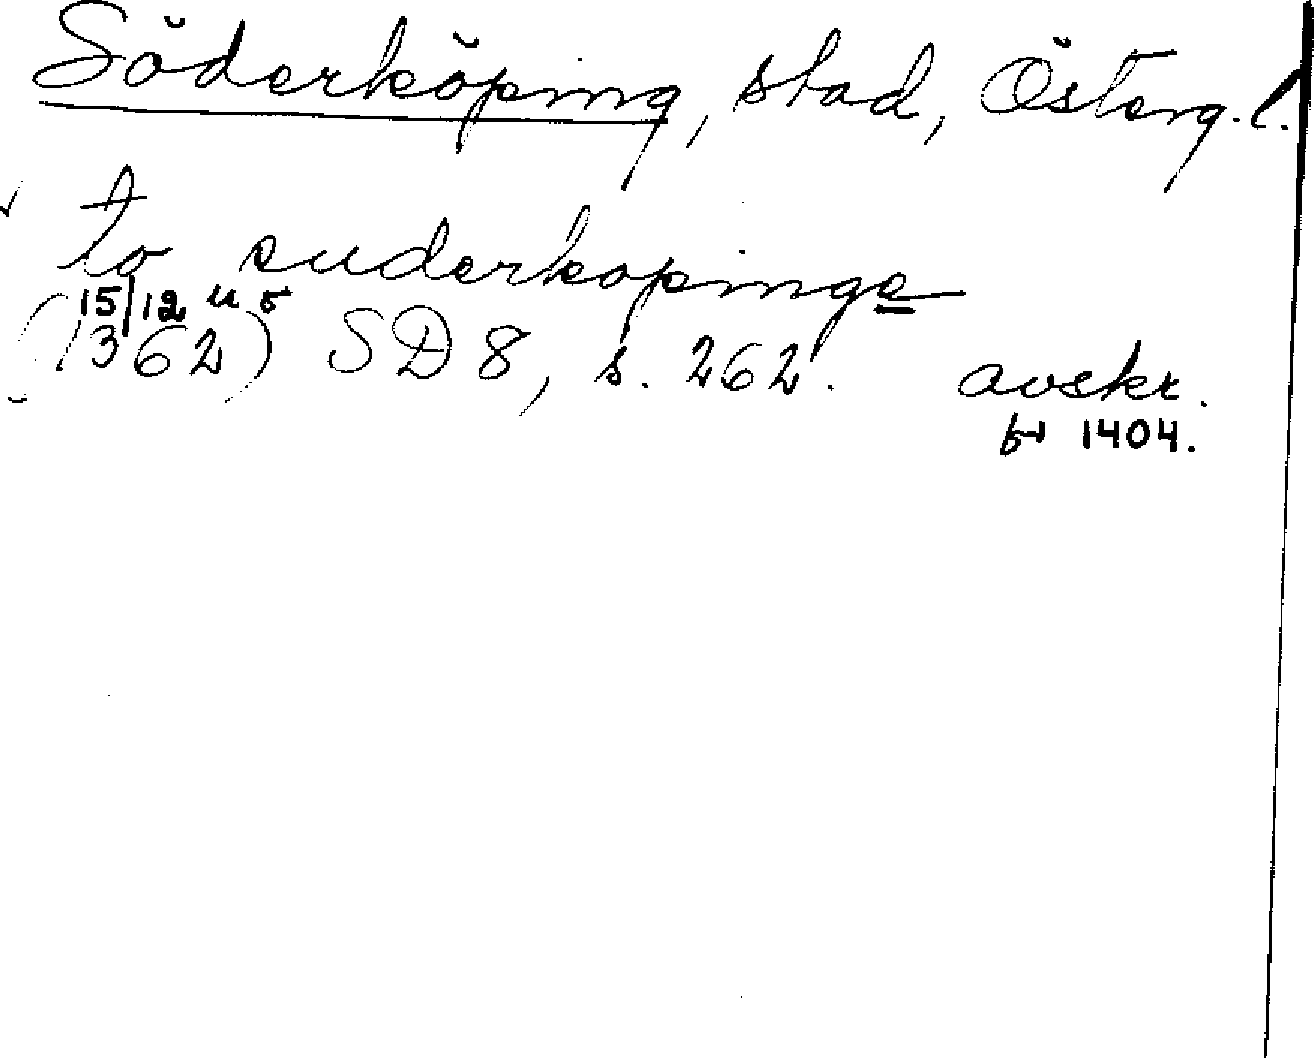 Söderköping, stad, Österg. l.
to suderkopinge
15/12 u o
(1362) SD 8, s. 262. avskr.
fr 1404.